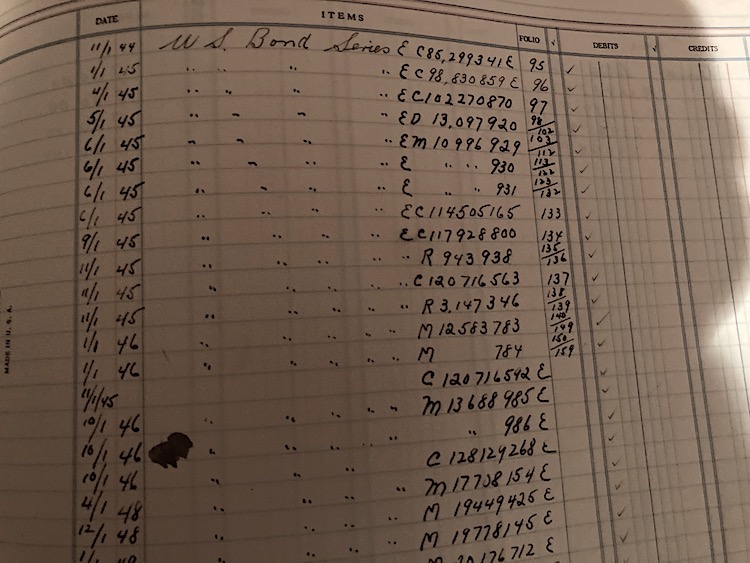 DATE ITEMS FOLIO √ DEBITS √ CREDITS
11/1 44 U S. Bond Series E C85,299341E 95 ✓
1/1 45 " " " " E C98,830859E 96 ✓
4/1 45 " " " " E C102270870 97 ✓
5/1 45 " " " " E D 13,097920 98/102 ✓
6/1 45 " " " " E M 10996929 103/112 ✓
6/1 45 " " " " E " " 930 113/122 ✓
6/1 45 " " " " E " " 931 123/132 ✓
6/1 45 " " " " E C114505165 133 ✓
9/1 45 " " " " E C117928800 134 ✓
11/1 45 " " " " R 943938 135/136 ✓
11/1 45 " " " " C120716563 137 ✓
11/1 45 " " " " R 3,147346 138/139 ✓
1/1 46 " " " " M 12583783 140/149 ✓
1/1 46 " " " " M 784 150/159 ✓
11/1/45 C 120716542 E ✓
10/1 46 " " " " M 13688985 E ✓
10/1 46 " " " " " 986 E ✓
10/1 46 " " " C 128129268 E ✓
4/1 48 " " " " M 17708154 E ✓
12/1 48 " " " M 19449425 E ✓
" " " M 19778145 E ✓
MADE IN U. S. A.